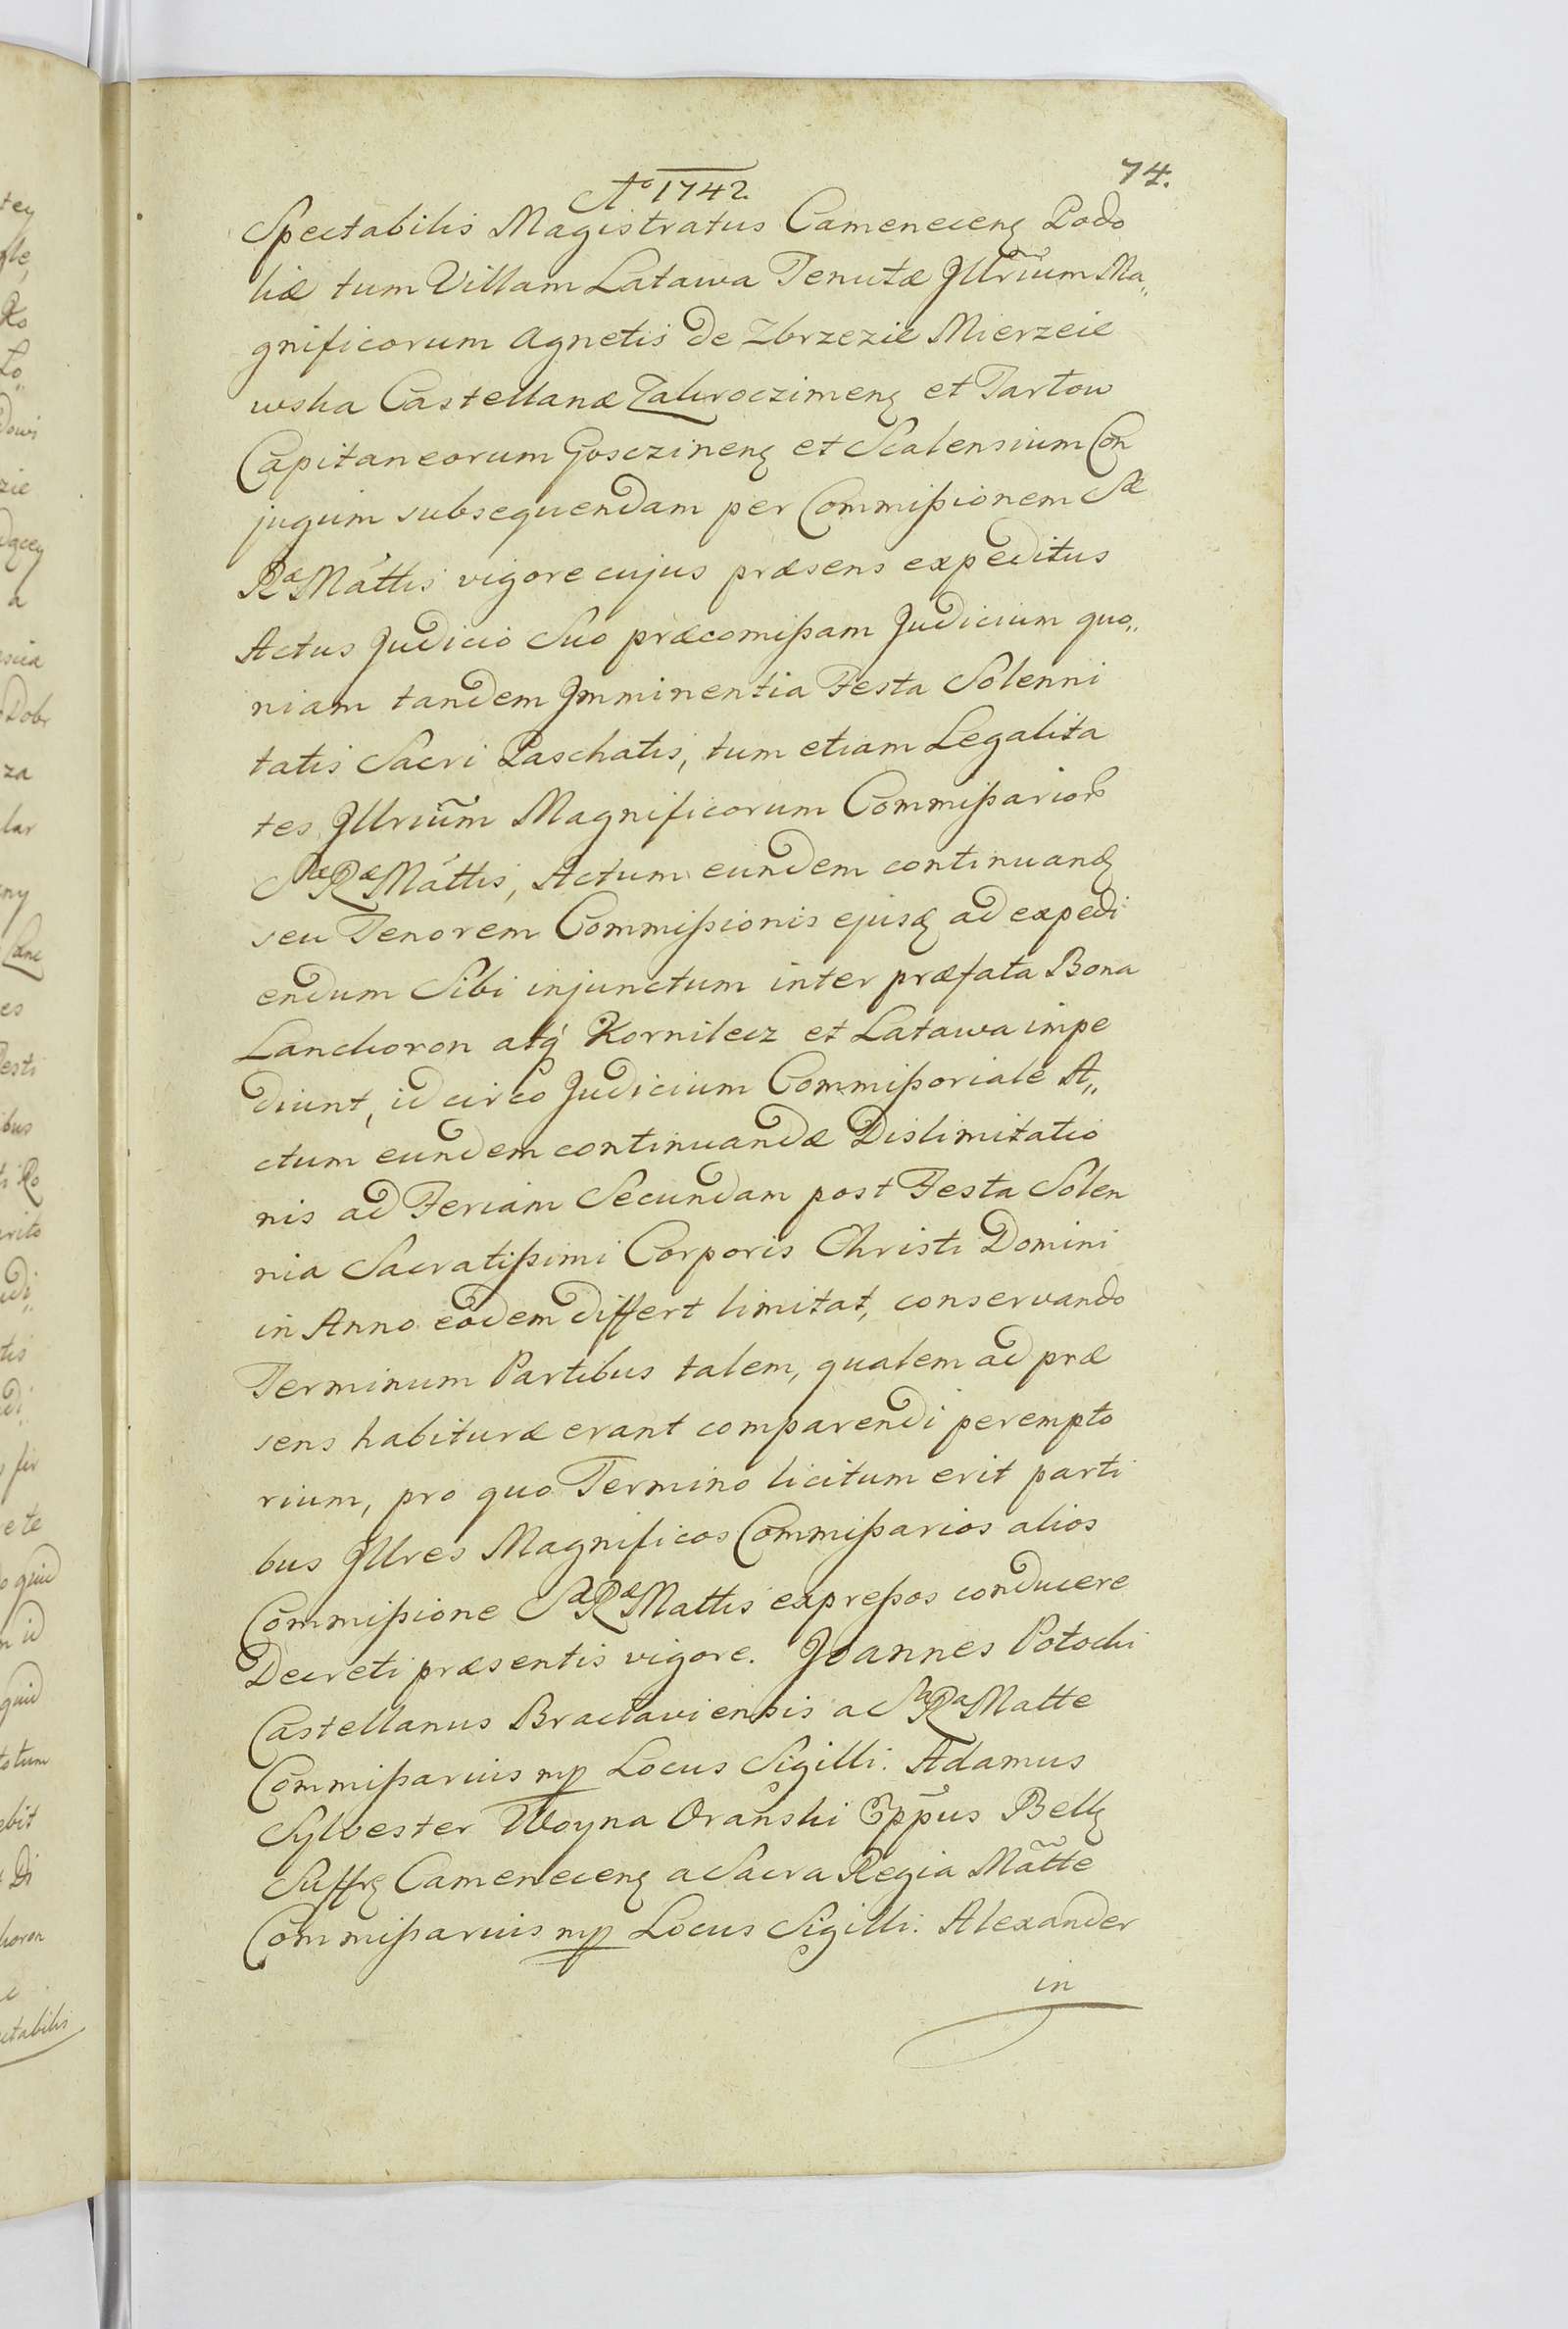 74.
Ao 1742.
Spectabilis Magistratus Camenecenʒ Podo
liæ tum Villam Latawa Tenutæ Jllriũm Ma„
gnificorum Agnetis de Zbrzezie Mierzeie
wska Castellanæ Zakroczimenʒ et Tartow
Capitaneorum Gosczinenʒ et Scalensium Con
jugum subsequendam per Commißionem Sæ
Ræ Mattis vigore cujus præsens expeditus
Actus Judicio Suo præcomißam Judicium quo„
niam tandem Jmminentia Festa Solenni
tatis Sacri Paschatis, tum etiam Legalita
tes Jllriũm Magnificorum Commißarior
Sæ Ræ Mattis, Actum eundem continuandʒ
seu Tenorem Commißionis ejusdʒ ad expedi
endum Sibi injunctum inter præfata Bona
Lanckoron atq́ Kornilecz et Latawa impe
diunt, id circo Judicium Commißoriale A„
ctum eundem continuandæ Dislimitatio
nis ad Feriam Secundam post Festa Solen
nia Sacratißimi Corporis Christi Domini
in Anno eodem differt limitat, conservando
Terminum Partibus talem, qualem ad præ
sens habituræ erant comparendi perempto
rium, pro quo Termino licitum erit parti
bus Jllres Magnificos Commißarios alios
Commißione Sæ Ræ Mattis expreßos conducere
Decreti præsentis vigore. Joannes Potocki
Castellanus Braclaviensis a Sa Ra Matte
Commißarius mp Locus Sigilli. Adamus
Sylvester Woyna Oranski Eppus Bellʒ
Suffrʒ Camenecenʒ a Sacra Regia Mãtte
Commißarius mp Locus Sigilli. Alexander
in